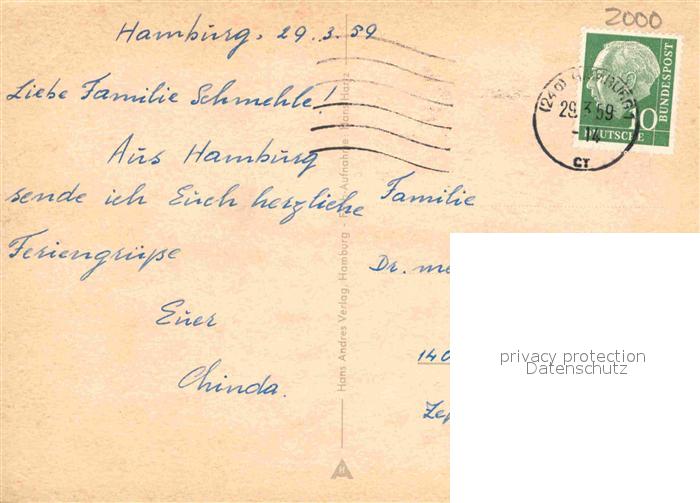 2000
Hamburg. 29.3.59
Liebe Familie Schmehle!
Aus Hamburg
sende ich Euch herzliche
Feriengrüße
Euer
Chinda.
Familie
Dr. me
140
Zep
DEUTSCHE
BUNDESPOST
10
29.3.59
-14
CT
Hans Andres Verlag, Hamburg - Foto-Aufnahme Hans Hartz
H
privacy protection
Datenschutz